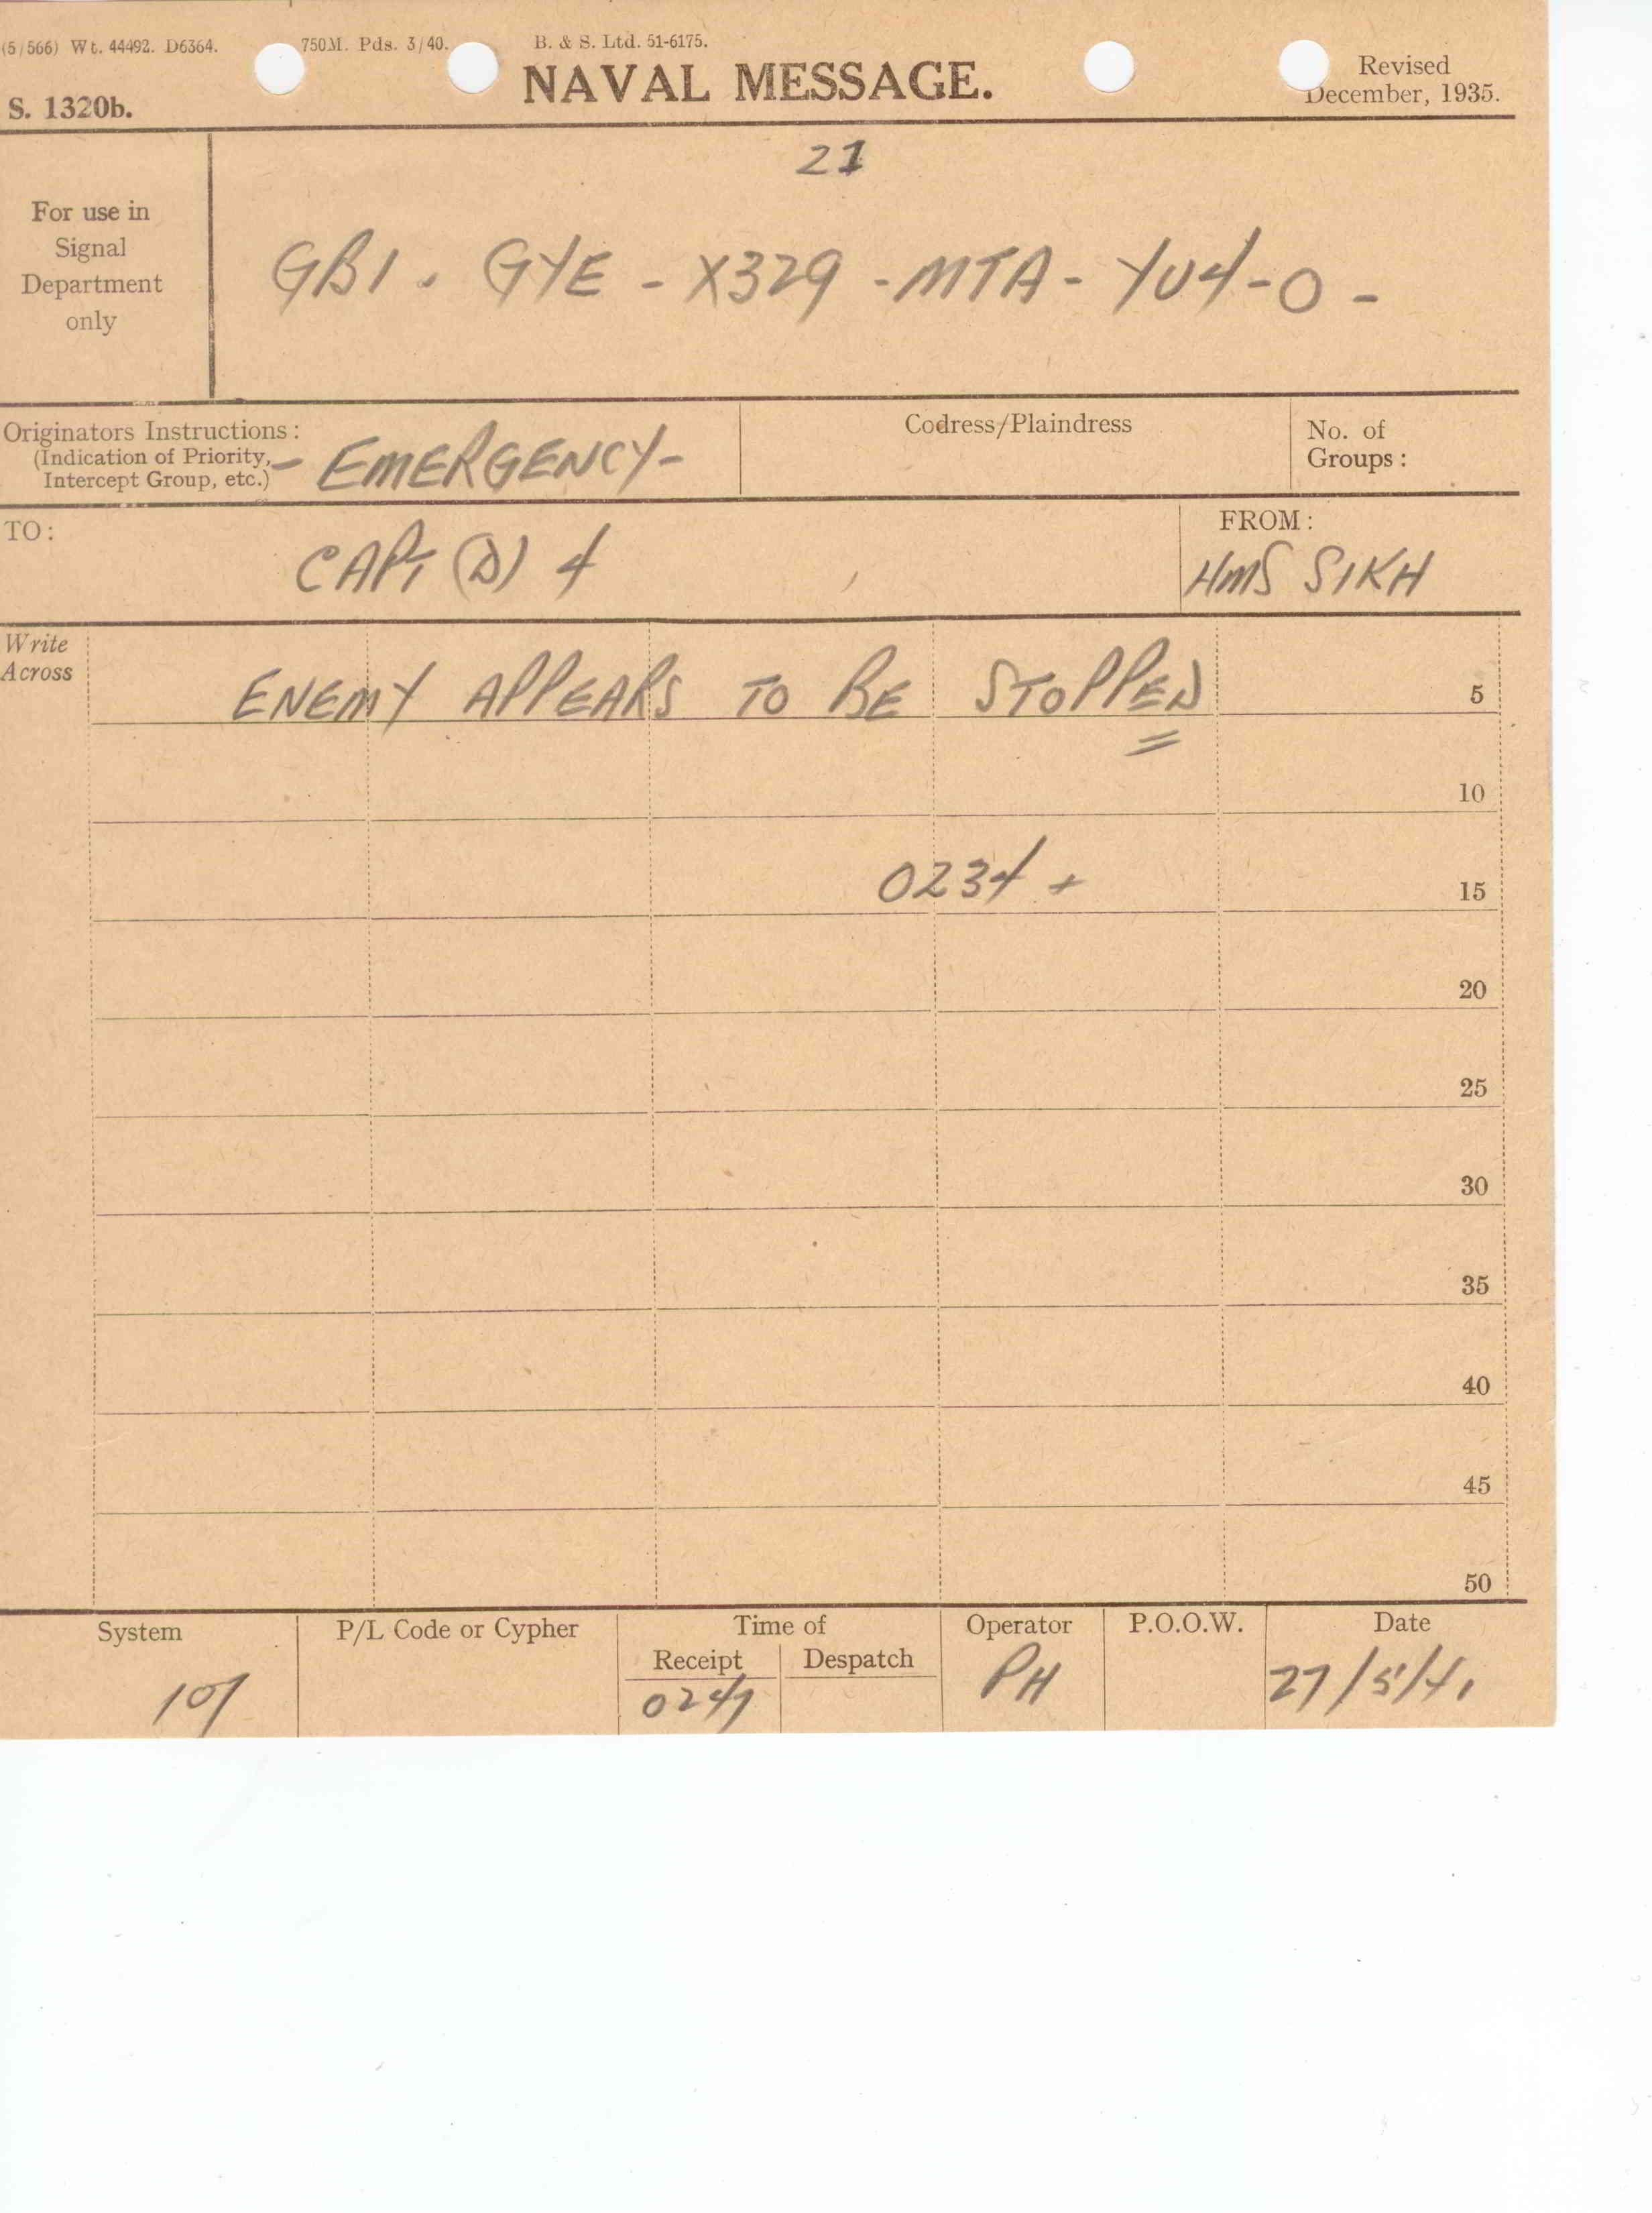 (5/566) Wt. 44492. D6364. 750M. Pds. 3/40. B. & S. Ltd. 51-6175.
S. 1320b. NAVAL MESSAGE. Revised
December, 1935.
21
For use in
Signal
Department
only
GB1 . GYE - X329 - MTA - YU4 - O -
Originators Instructions:
(Indication of Priority,
Intercept Group, etc.)
- EMERGENCY -
Codress/Plaindress
No. of
Groups:
TO:
CAPT (D) 4
FROM:
HMS SIKH
Write
Across
ENEMY APPEARS TO BE STOPPED
5
10
0234 +
15
20
25
30
35
40
45
50
System P/L Code or Cypher Time of Operator P.O.O.W. Date
Receipt Despatch
107 0247 PH 27/5/41